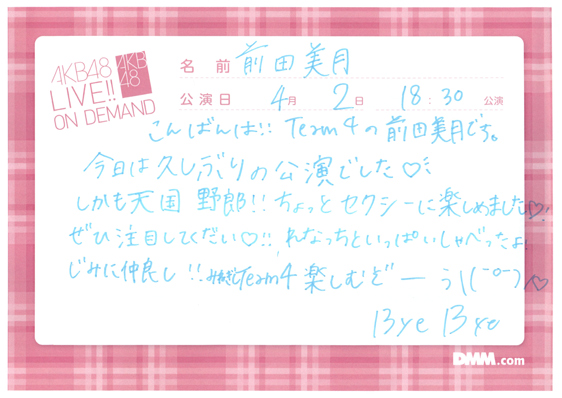 AKB48
LIVE!!
ON DEMAND
AKB
48
名前 前田美月
公演日 4月 2日 18:30 公演
こんばんは!! Team4の前田美月です。
今日は久しぶりの公演でした♡
しかも天国野郎!! ちょっとセクシーに楽しめました♡
ぜひ注目してくだい♡!! れなっちといっぱいしゃべったよ!
じみに仲良し!! Team4 楽しむどーう\\(ˉ0ˉ)
Bye Bye
DMM.com